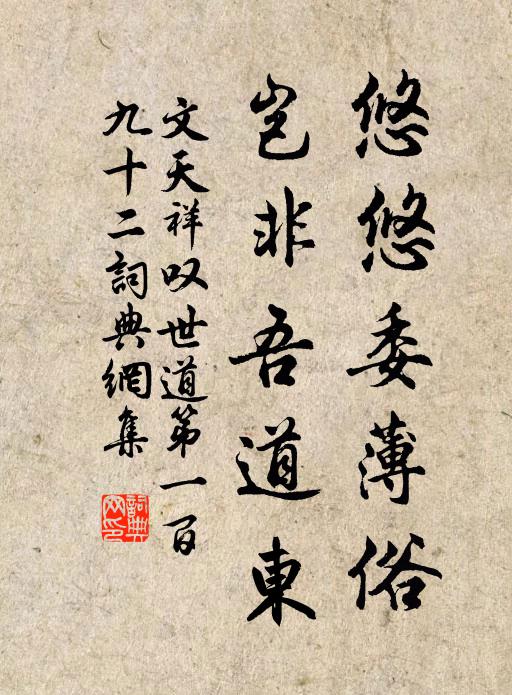 悠悠委薄俗
豈非吾道東
文天祥叹世道第一百
九十二詞典網集
詞典网印